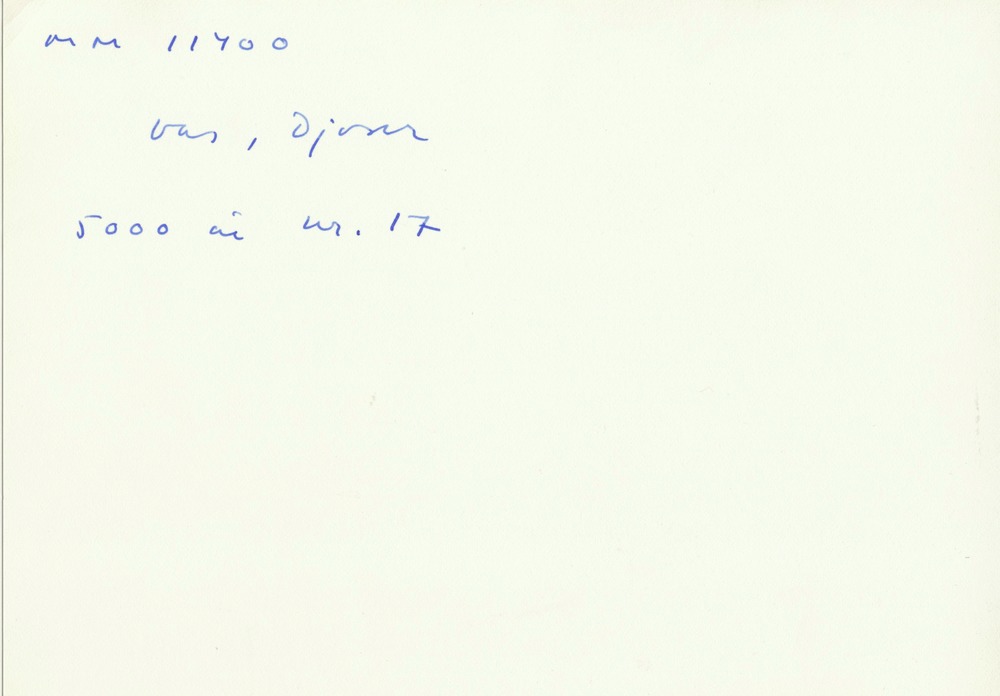 MM 11400
Vas, Djoser
5000 år nr. 17